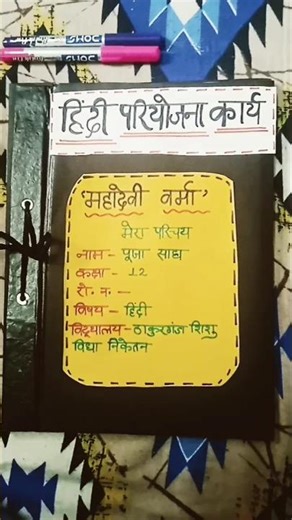 हिंदी परियोजना कार्य
'महादेवी वर्मा'
मेरा परिचय
नाम - पूजा साहा
कक्षा - 12
रो. न. -
विषय - हिंदी
विद्यालय - ठाकुरगंज शिशु
विद्या निकेतन